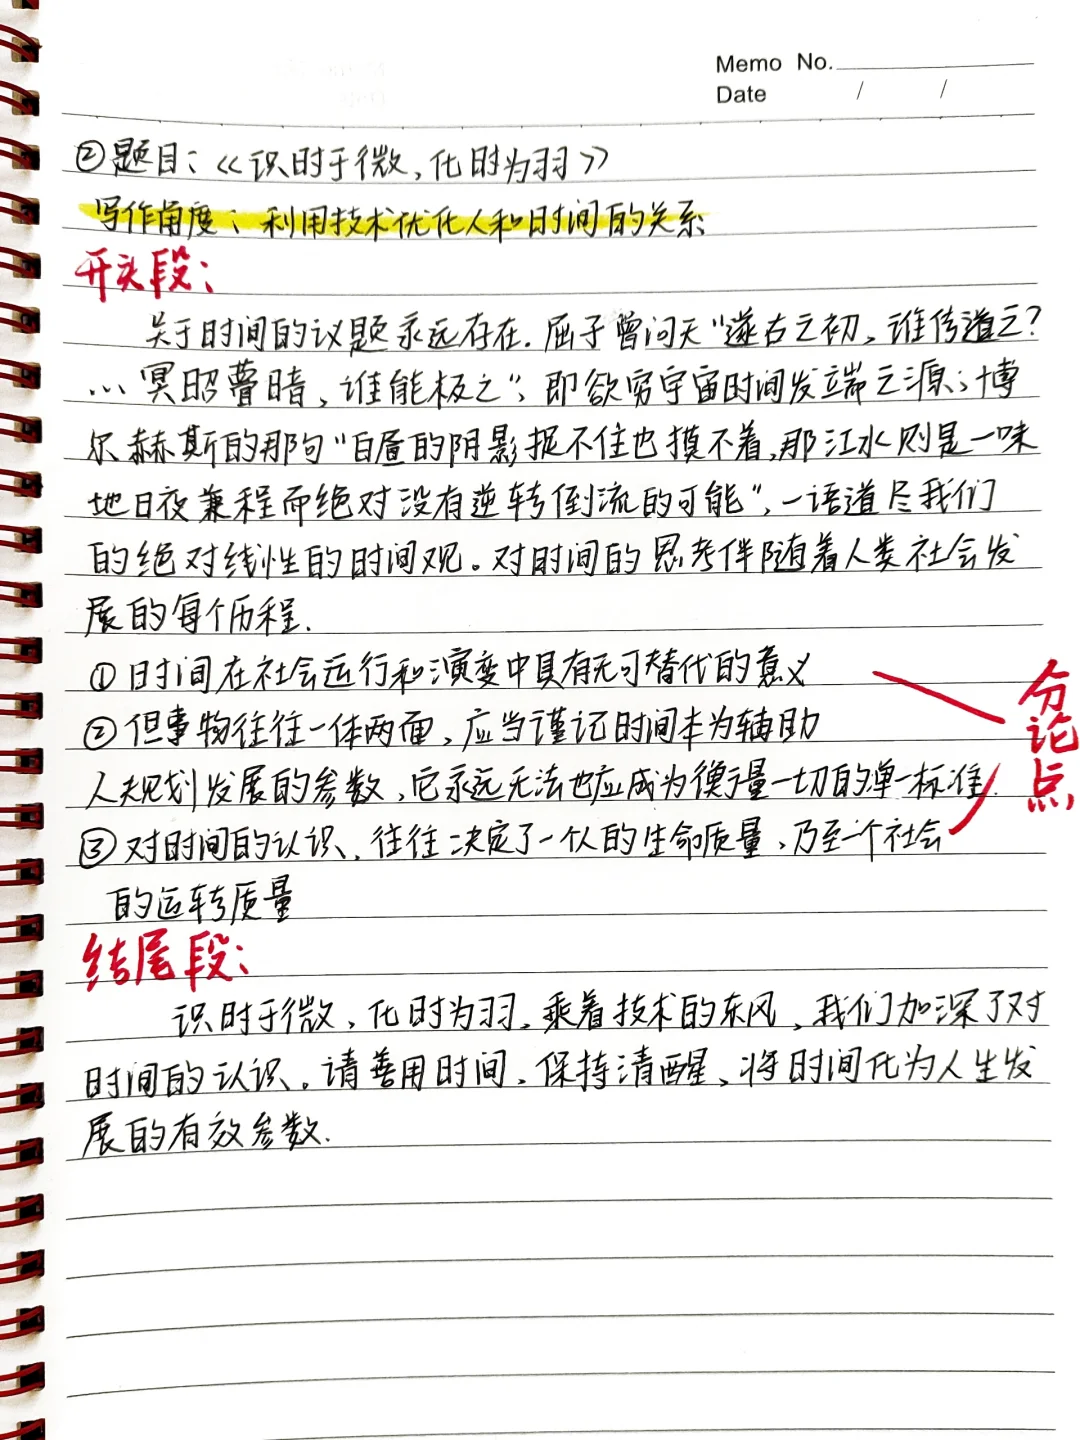 Memo No.
Date / /
②题目：《识时于微，化时为羽》
写作角度：利用技术优化人和时间的关系
开头段：
关于时间的议题永远存在.屈子曾问天"遂古之初，谁传道之？
…冥昭瞢暗，谁能极之"，即欲穷宇宙时间发端之源；博
尔赫斯的那句"白昼的阴影捉不住也摸不着，那江水则是一味
地日夜兼程而绝对没有逆转倒流的可能"，一语道尽我们
的绝对线性的时间观。对时间的思考伴随着人类社会发
展的每个历程.
①时间在社会运行和演变中具有无可替代的意义
②但事物往往一体两面，应当谨记时间本为辅助
人规划发展的参数，它永远无法也应成为衡量一切的单一标准.
③对时间的认识，往往决定了一个人的生命质量，乃至一个社会
的运转质量
分论点
结尾段：
识时于微，化时为羽，乘着技术的东风，我们加深了对
时间的认识。请善用时间，保持清醒，将时间化为人生发
展的有效参数.